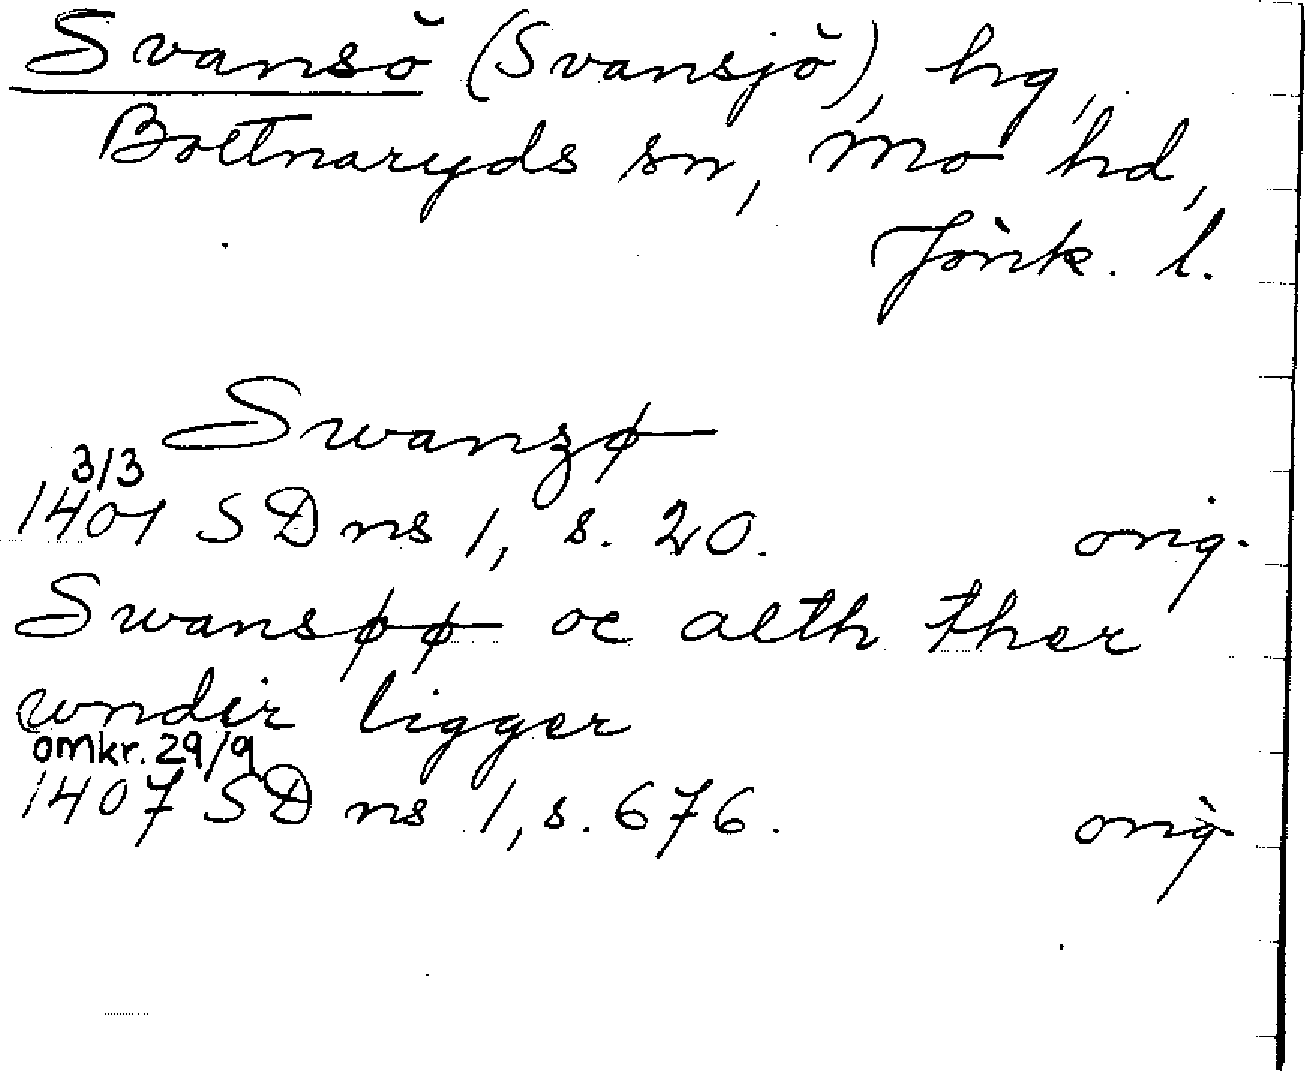 Svansö (Svansjö), hg,
Bottnaryds sn, Mo hd,
Jönk. l.
Swanzø
3/3
1401 SD ns 1, s. 20. orig.
Swansøø oc alth ther
wndir ligger
omkr. 29/9
1407 SD ns 1, s. 676. orig